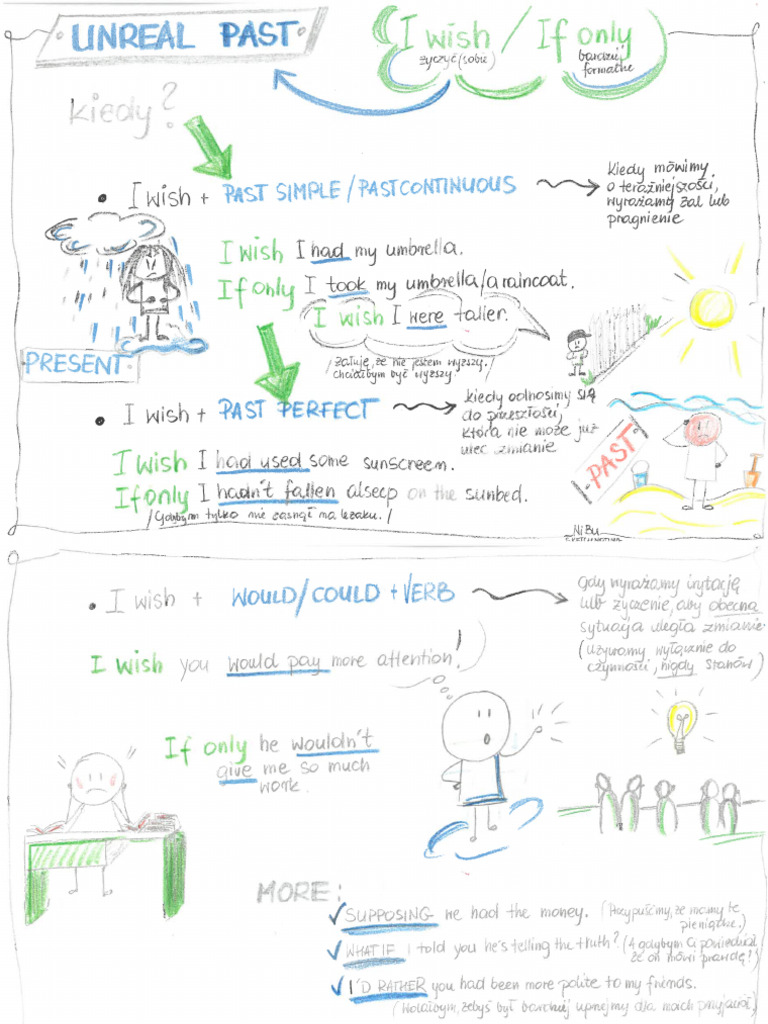 UNREAL PAST
I wish / If only
życzyć (sobie)
bardziej
formalne
Kiedy?
• I wish + PAST SIMPLE / PAST CONTINUOUS
Kiedy mówimy
o teraźniejszości,
wyrażamy żal lub
pragnienie
I wish I had my umbrella.
If only I took my umbrella/a raincoat.
I wish I were taller.
/żałuję, że nie jestem wyższy.
chciałbym być wyższy./
PRESENT
• I wish + PAST PERFECT
kiedy odnosimy się
do przeszłości,
która nie może już
ulec zmianie
I wish I had used some sunscreen.
If only I hadn't fallen alseep on the sunbed.
/Gdybym tylko nie zasnął na leżaku./
PAST
NiBu
• I wish + WOULD/COULD + VERB
Gdy wyrażamy irytację
lub życzenie, aby obecna
sytuacja uległa zmianie
(używamy wyłącznie do
czynności, nigdy stanów)
I wish you would pay more attention!
If only he wouldn't
give me so much
work.
MORE:
✓ SUPPOSING we had the money. (Przypuśćmy, że mamy te
pieniądze.)
✓ WHAT IF I told you he's telling the truth? (A gdybym Ci powiedział,
że on mówi prawdę?)
✓ I'D RATHER you had been more polite to my friends.
(Wolałbym, żebyś był bardziej uprzejmy dla moich przyjaciół)